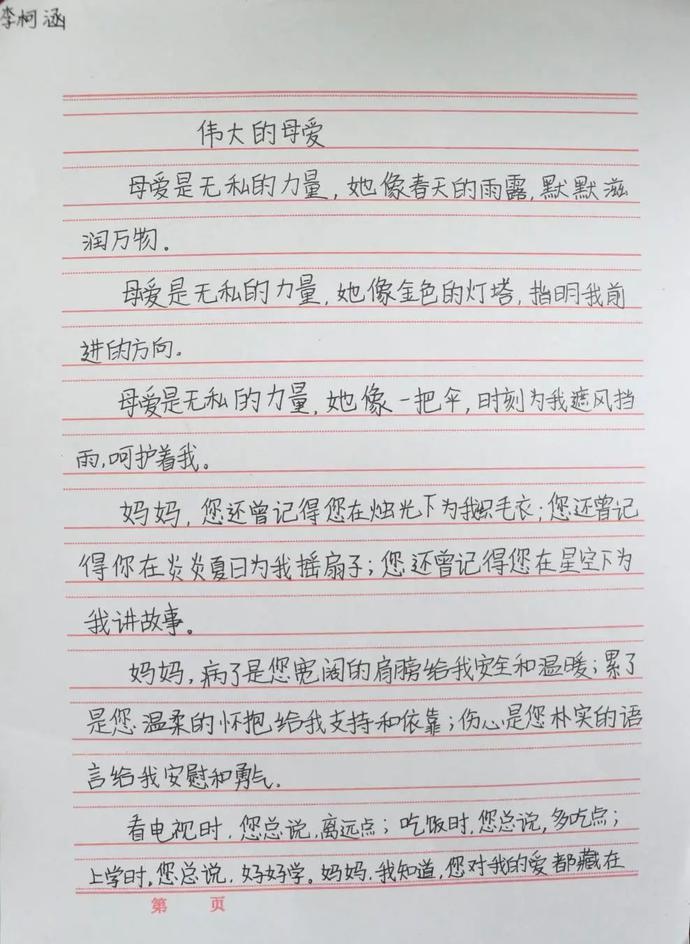 李柯涵
伟大的母爱
母爱是无私的力量，她像春天的雨露，默默滋
润万物。
母爱是无私的力量，她像金色的灯塔，指明我前
进的方向。
母爱是无私的力量，她像一把伞，时刻为我遮风挡
雨，呵护着我。
妈妈，您还曾记得您在烛光下为我织毛衣；您还曾记
得你在炎炎夏日为我摇扇子；您还曾记得您在星空下为
我讲故事。
妈妈，病了是您宽阔的肩膀给我安全和温暖；累了
是您温柔的怀抱给我支持和依靠；伤心是您朴实的语
言给我安慰和勇气。
看电视时，您总说，离远点；吃饭时，您总说，多吃点；
上学时，您总说，好好学。妈妈，我知道，您对我的爱都藏在
第 页